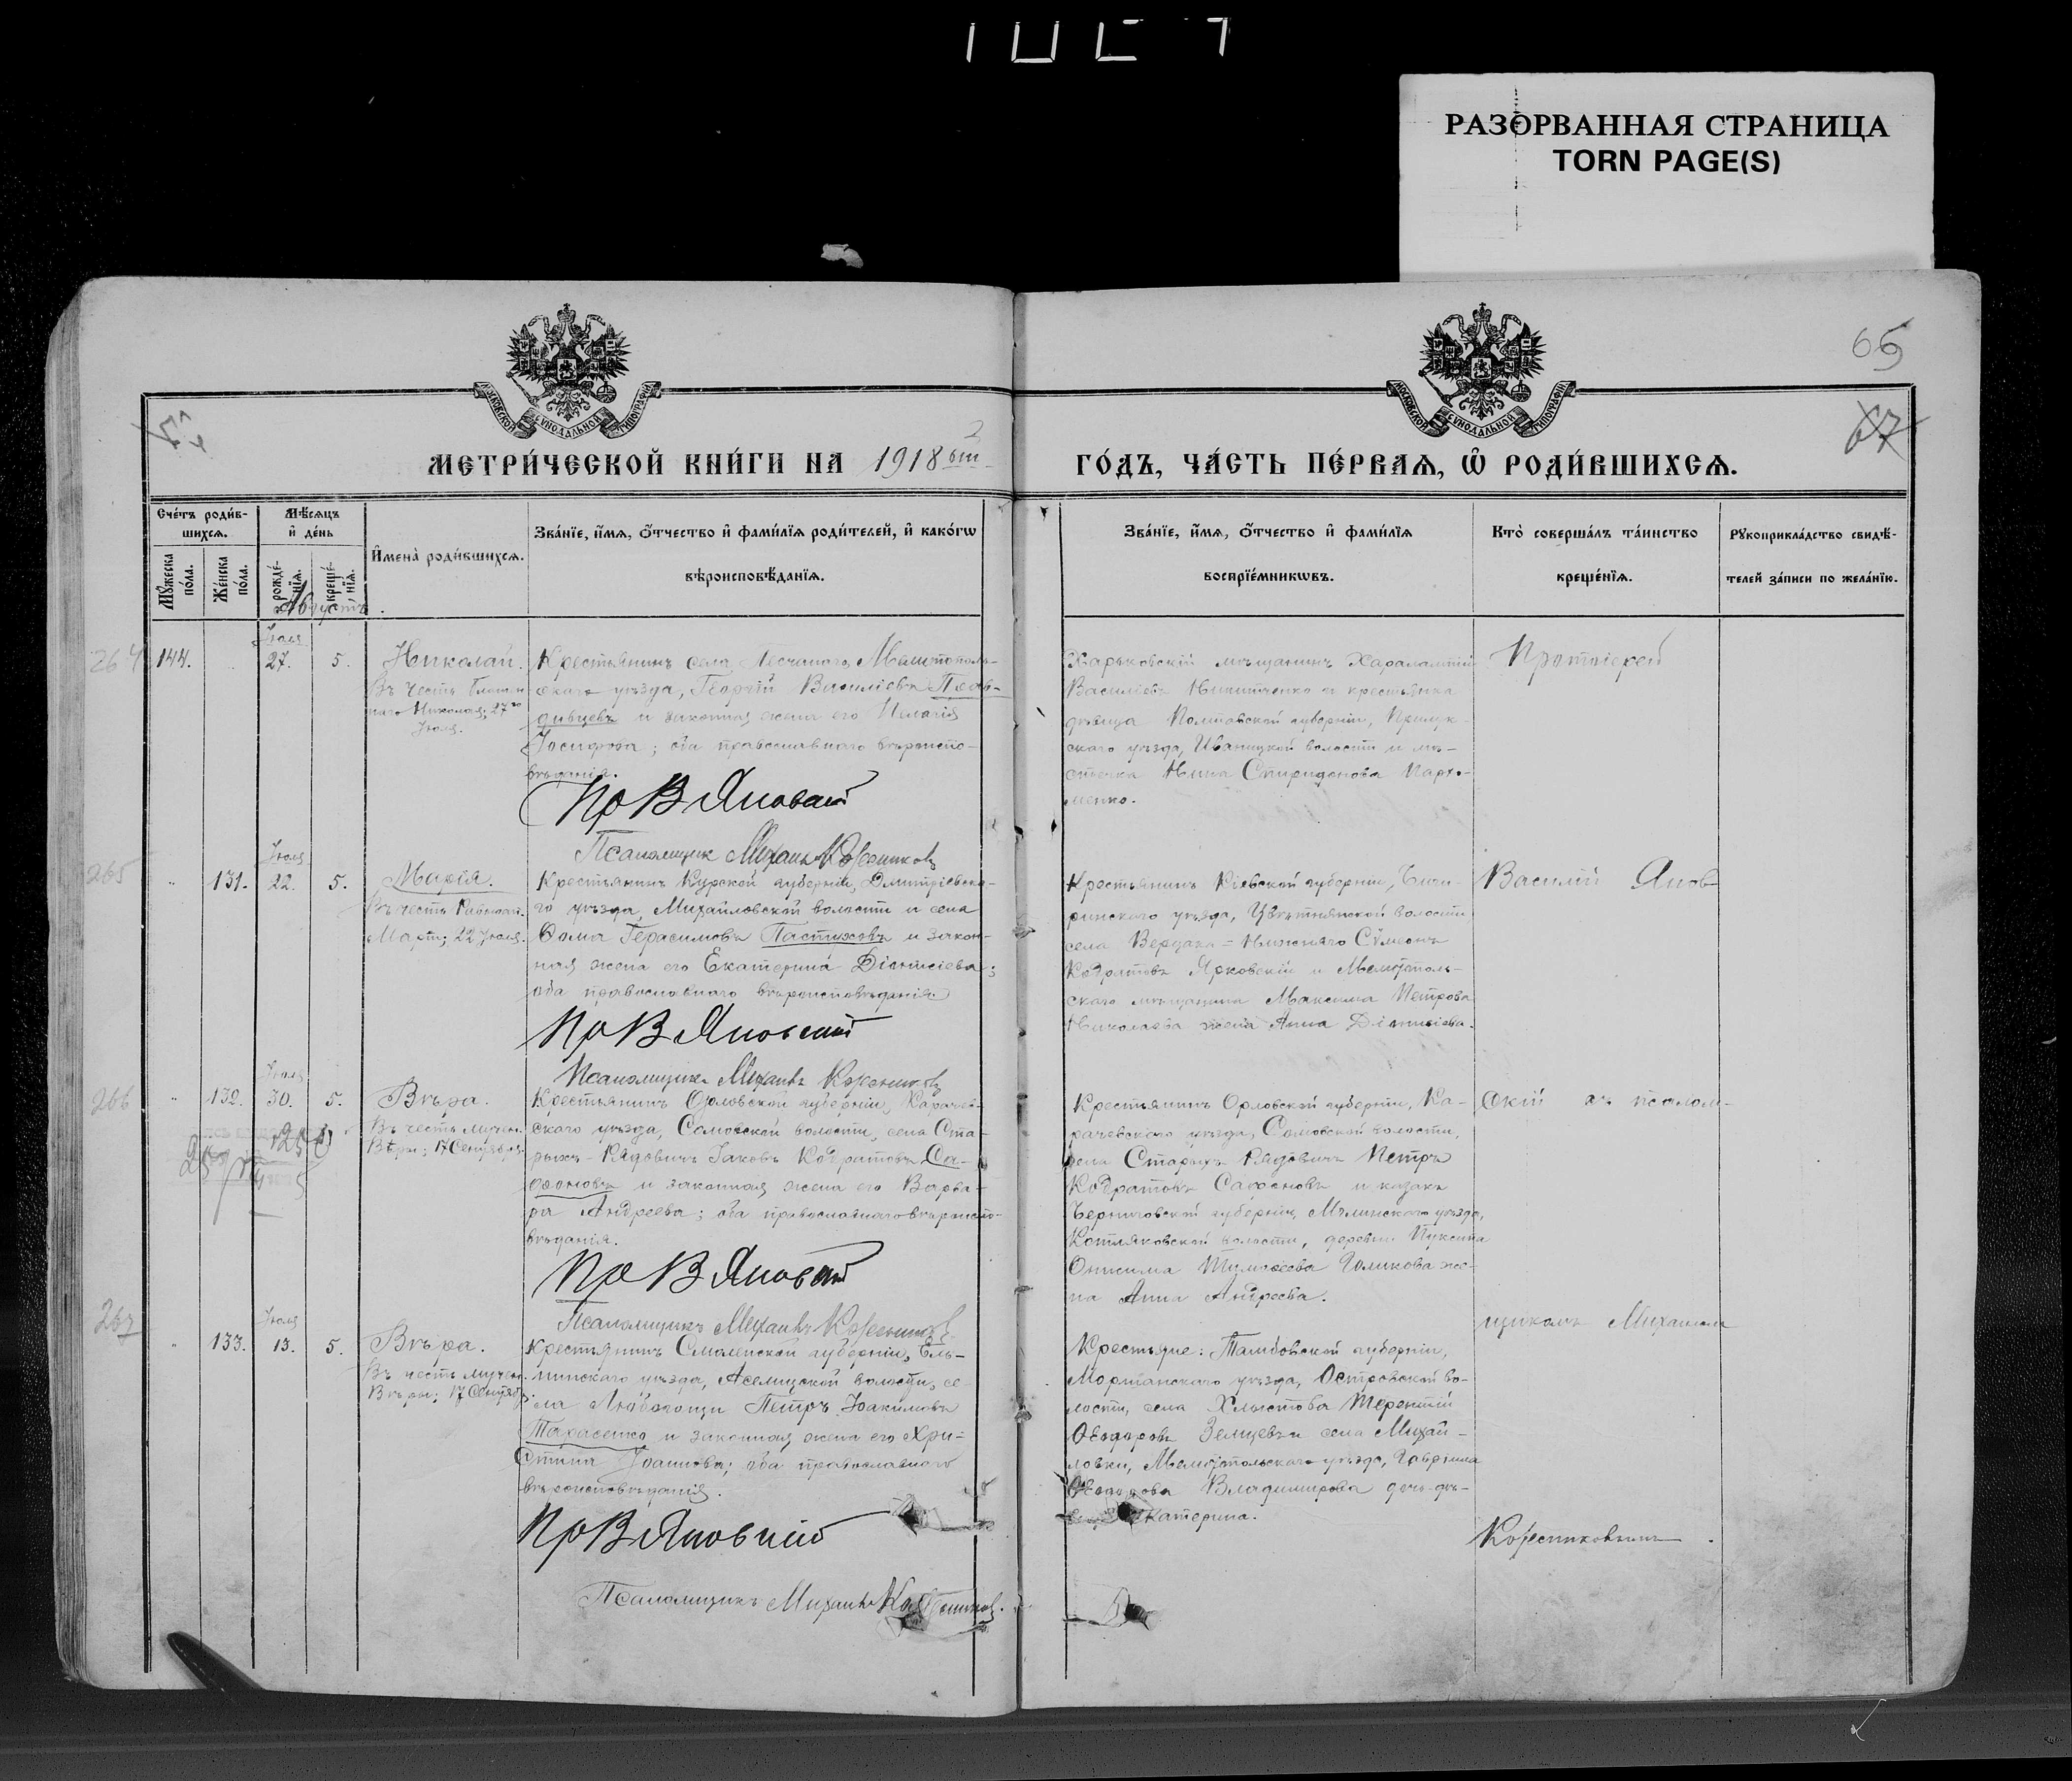 РАЗОРВАННАЯ СТРАНИЦА
TORN PAGE(S)
66
67
МОСКОВСКОЙ СѴНОДАЛЬНОЙ ТИПОГРАФІИ
МОСКОВСКОЙ СѴНОДАЛЬНОЙ ТИПОГРАФІИ
МЕТРИ́ЧЕСКОЙ КНИ́ГИ НА 1918
ГО́ДЪ, ЧА́СТЬ ПЕ́РВАѦ, Ѡ РОДИ́ВШИХСѦ.
Сче́тъ роди́в-
шихсѧ.
Мꙋ́жеска по́ла.
Же́нска по́ла.
Мѣ́сѧцъ
и҆ де́нь
рожде́-
нїѧ.
креще́-
нїѧ.
Августъ.
И҆мена̀ роди́вшихсѧ.
Зва́нїе, и҆́мѧ, ѻ҆́тчество и҆ фами́лїѧ роди́телей, и҆ како́гѡ
вѣроисповѣ́данїѧ.
Зва́нїе, и҆́мѧ, ѻ҆́тчество и҆ фами́лїѧ
воспрїе́мникѡвъ.
Кто̀ соверша́лъ та́инство
креще́нїѧ.
Рꙋкоприкла́дство свидѣ́-
телей за́писи по жела́нїю.
264
144.
Іюля
27.
5.
Николай.
Въ честь Блажен
наго Николая; 27го
Іюля.
Крестьянинъ села Песчаного, Мелитополь-
скаго уѣзда, Георгій Василіевъ
и законная жена его Пелагія
Іосифова; оба православнаго вѣроиспо-
вѣданія.
Пр В Яновскій
Псаломщикъ Михаилъ Колесниковъ
Харьковскій мѣщанинъ Харалампій
Василіевъ Никитченко и крестьянка
дѣвица Полтавской губерніи, Прилук-
скаго уѣзда, Иваницкой волости и мѣ-
стечка Нина Спиридонова Пархо-
менко.
Протоіерей
265
131.
Іюля
22.
5.
Марія.
Въ честь Равноап.
Маріи; 22 Іюля.
Крестьянинъ Курской губерніи, Дмитріевска-
го уѣзда, Михайловской волости и села
Ѳома Герасимовъ Пастуховъ и закон-
ная жена его Екатерина Діонисіева;
оба православнаго вѣроисповѣданія.
Пр В Яновскій
Псаломщикъ Михаилъ Колесниковъ
Крестьянинъ Кіевской губерніи, Чиги-
ринскаго уѣзда, Цвѣтнянской волости,
села Вершаца-Нижняго Сѵмеонъ
Кодратовъ Ярковскій и Мелитополь-
скаго мѣщанина Максима Петрова
Николаева жена Анна Діонисіева.
Василій Янов-
266
132.
Іюля
30.
5.
Вѣра.
Въ честь мучен.
Вѣры; 17 Сентября.
Крестьянинъ Орловской губерніи, Карачев-
скаго уѣзда, Самовской волости, села Ста-
рыхъ-Рядовичъ Іаковъ Кодратовъ Са-
фоновъ и законная жена его Варва-
ра Андреева; оба православнаго вѣроиспо-
вѣданія.
Пр В Яновскій
Псаломщикъ Михаилъ Колесниковъ
Крестьянинъ Орловской губерніи, Ка-
рачевскаго уѣзда, Самовской волости,
села Старыхъ Рядовичъ Петръ
Кодратовъ Сафоновъ и казака
Черниговской губерніи, Мглинскаго уѣзда,
Котляковской волости, деревни
Онисима Тимоѳеева Голикова же-
на Анна Андреева.
скій съ псалом-
267
133.
Іюля
13.
5.
Вѣра.
Въ честь мучен.
Вѣры; 17 Сентябр.
Крестьянинъ Смоленской губерніи, Ель-
нинскаго уѣзда, волости, се-
ла Петръ Іоакимовъ
Тарасенко и законная жена его Хри-
стина Іоаннова; оба православнаго
вѣроисповѣданія.
Пр В Яновскій
Псаломщикъ Михаилъ Колесниковъ.
Крестьяне: Тамбовской губерніи,
Моршанскаго уѣзда, Островской во-
лости, села Хлыстова Терентій
Ѳеодоровъ Земцевъ и села Михай-
ловки, Мелитопольскаго уѣзда, Гавріила
Ѳеодорова Владимирова дочь-дѣ-
Екатерина.
щикомъ Михаиломъ
Колесниковымъ.